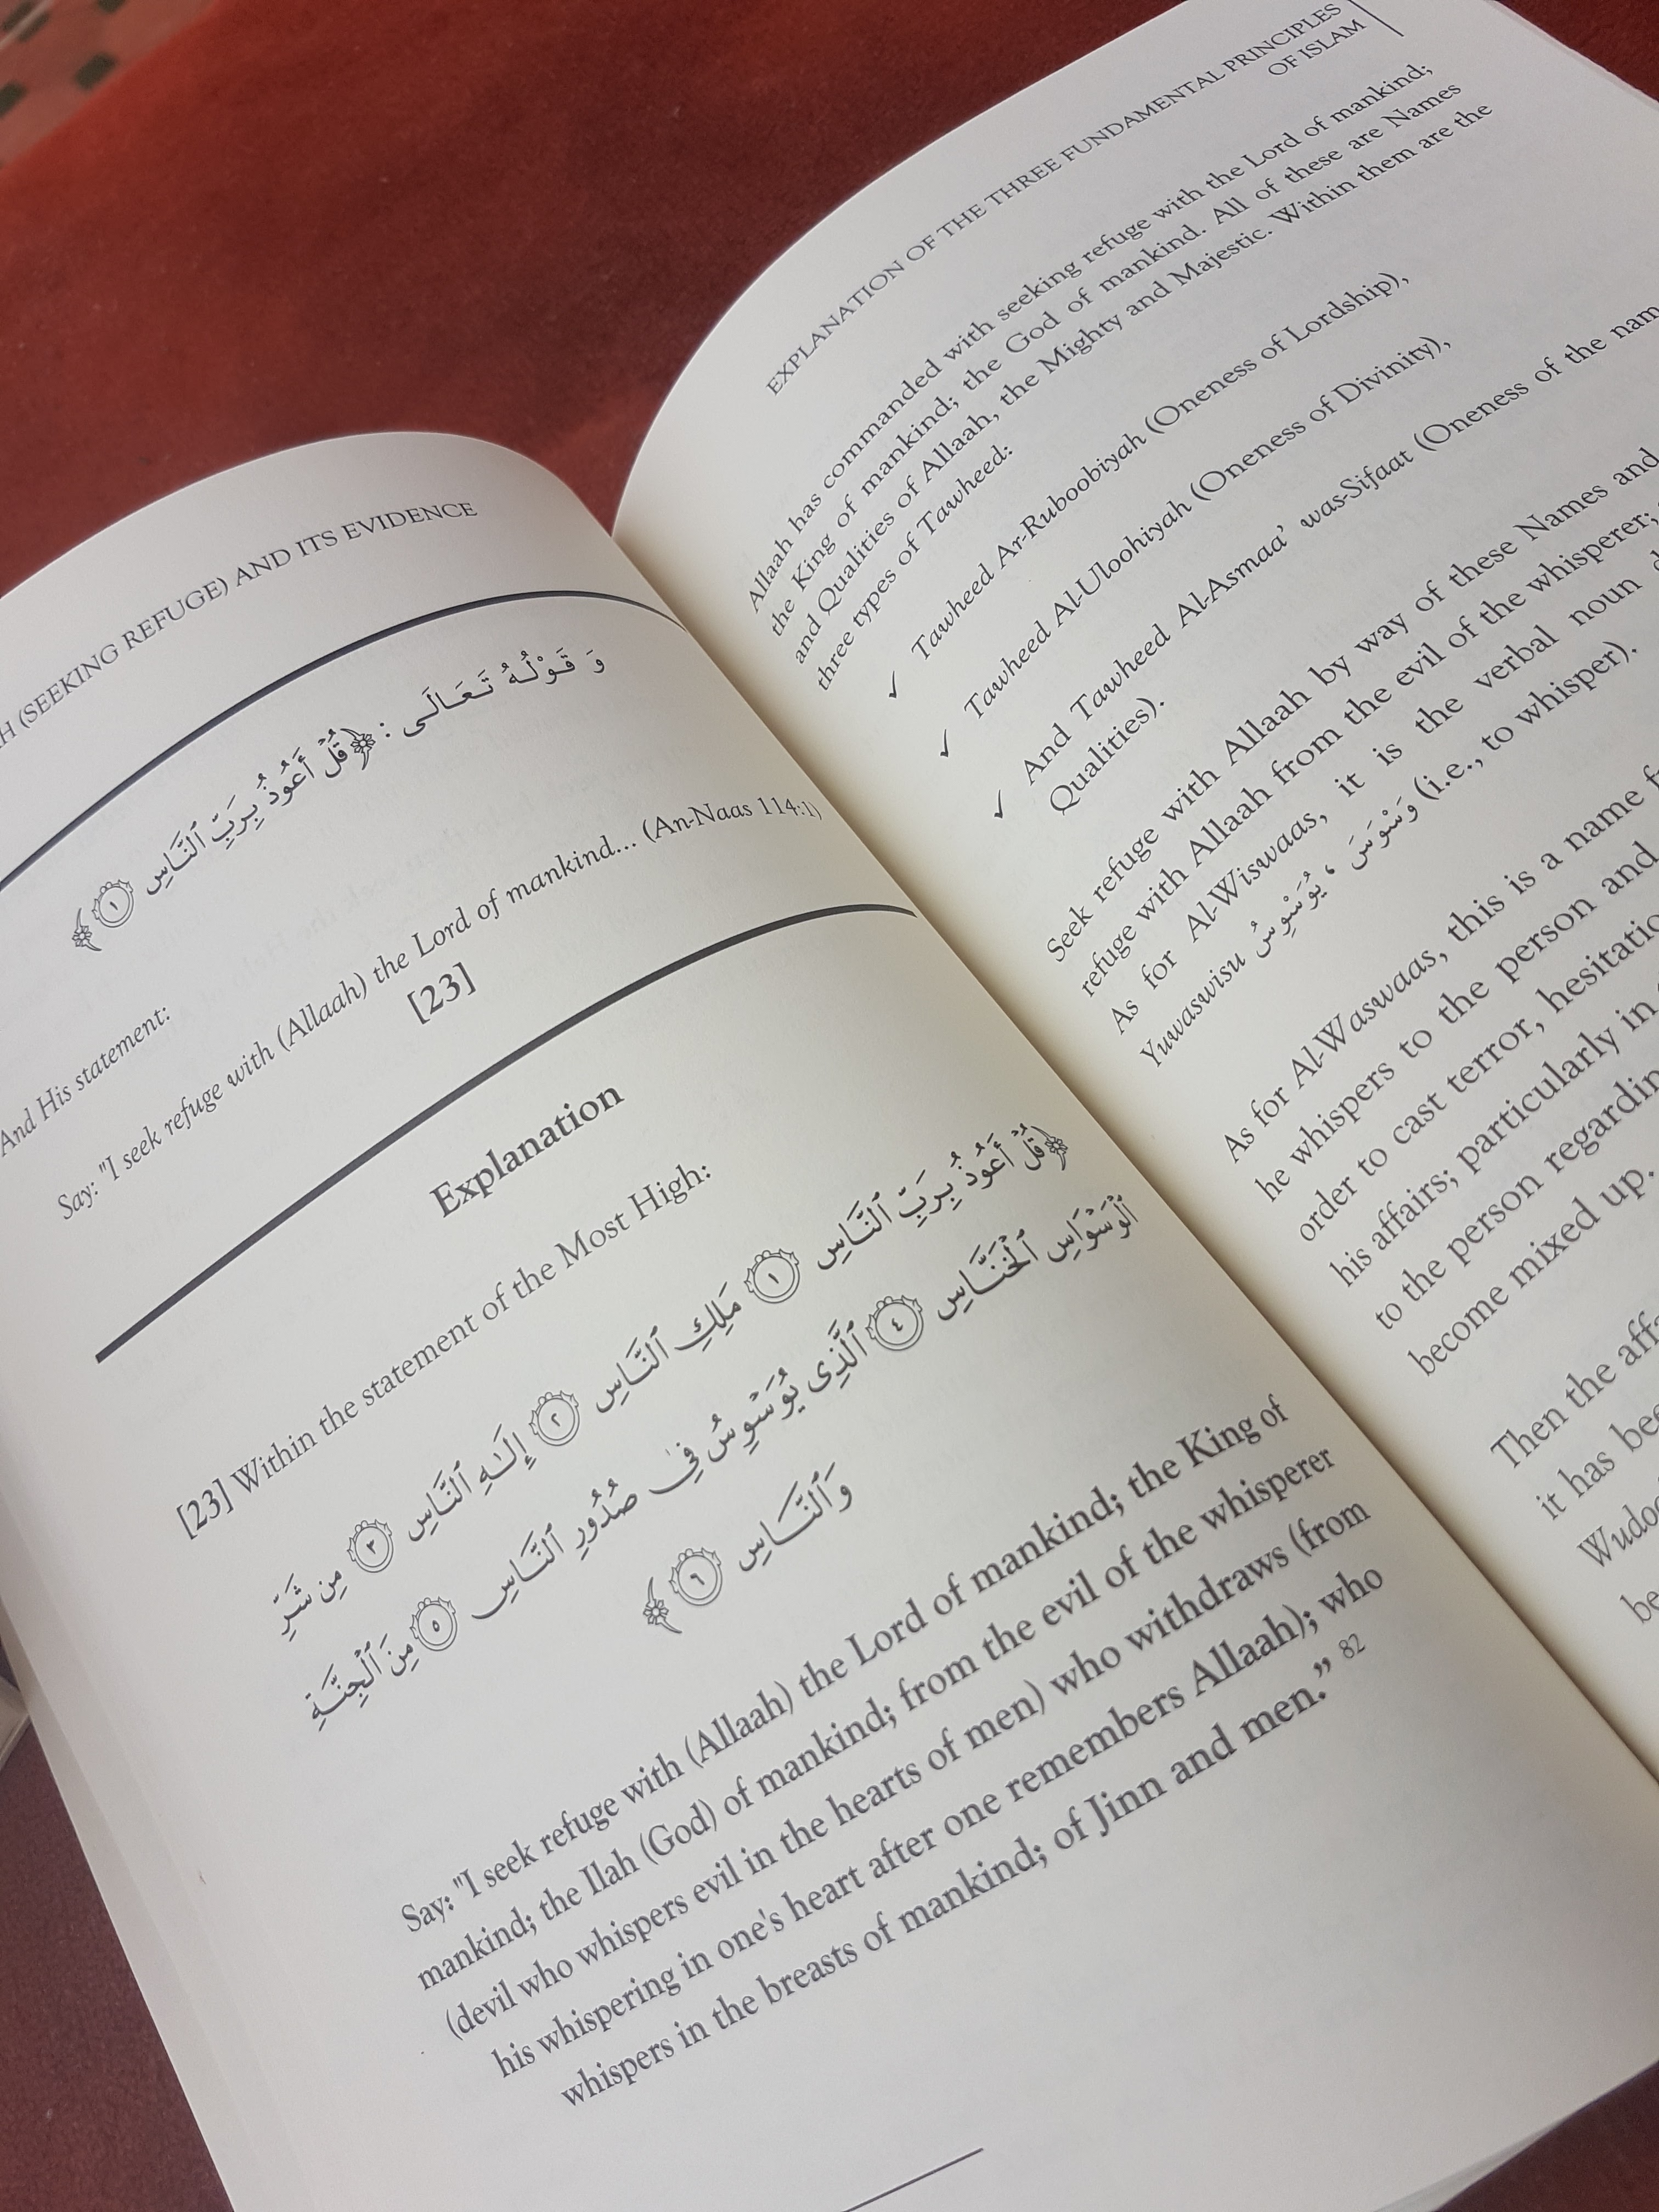 (SEEKING REFUGE) AND ITS EVIDENCE
وَ قَوْلُهُ تَعَالَى : ﴿قُلْ أَعُوذُ بِرَبِّ ٱلنَّاسِ ١﴾
And His statement:
Say: "I seek refuge with (Allaah) the Lord of mankind... (An-Naas 114:1)
[23]
Explanation
[23] Within the statement of the Most High:
﴿قُلْ أَعُوذُ بِرَبِّ ٱلنَّاسِ ١ مَلِكِ ٱلنَّاسِ ٢ إِلَـٰهِ ٱلنَّاسِ ٣ مِن شَرِّ
ٱلْوَسْوَاسِ ٱلْخَنَّاسِ ٤ ٱلَّذِى يُوَسْوِسُ فِى صُدُورِ ٱلنَّاسِ ٥ مِنَ ٱلْجِنَّةِ
وَٱلنَّاسِ ٦﴾
Say: "I seek refuge with (Allaah) the Lord of mankind; the King of
mankind; the Ilah (God) of mankind; from the evil of the whisperer
(devil who whispers evil in the hearts of men) who withdraws (from
his whispering in one's heart after one remembers Allaah); who
whispers in the breasts of mankind; of Jinn and men.” 82
EXPLANATION OF THE THREE FUNDAMENTAL PRINCIPLES
OF ISLAM
Allaah has commanded with seeking refuge with the Lord of mankind;
the King of mankind; the God of mankind. All of these are Names
and Qualities of Allaah, the Mighty and Majestic. Within them are the
three types of Tawheed:
✓ Tawheed Ar-Ruboobiyah (Oneness of Lordship),
✓ Tawheed Al-Uloohiyah (Oneness of Divinity),
✓ And Tawheed Al-Asmaa’ was-Sifaat (Oneness of the
Qualities).
Seek refuge with Allaah by way of these Names and
refuge with Allaah from the evil of the whisperer;
As for Al-Wiswaas, it is the verbal noun
Yuwaswisu وَسْوَسَ ، يُوَسْوِسُ (i.e., to whisper).
As for Al-Waswaas, this is a name
he whispers to the person and
order to cast terror,
his affairs; particularly in
to the person
become mixed up.
Then the
it has